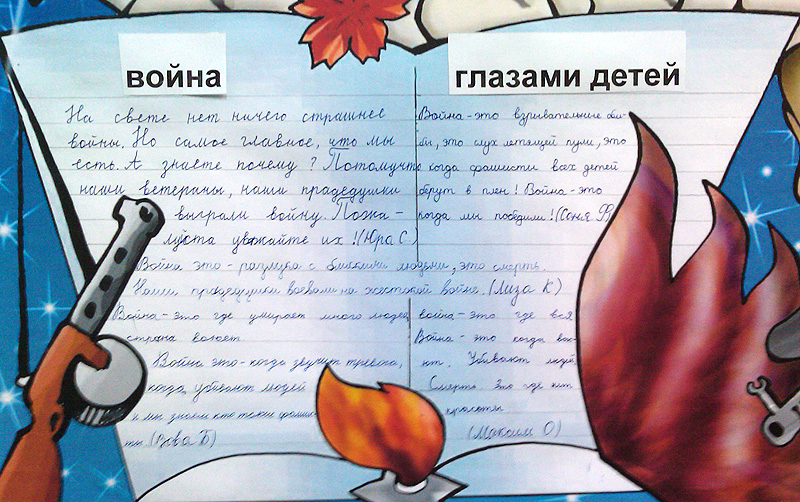 война
глазами детей
На свете нет ничего страшнее
войны. Но самое главное, что мы
есть. А знаете почему? Потомучто
наши ветераны, наши прадедушки
выграли войну. Пожа-
луйста уважайте их!(Юра С.)
Война-это взрывательные бом-
бы, это слух летящей пули, это
когда фашисты всех детей
берут в плен! Война-это
когда мы победили!(Соня Ф)
Война это-разлука с близкими людьми, это смерть.
Наши прадедушки воевали на жестокой войне.(Лиза К)
Война-это где умирает много людей
страна воюет
Война это-когда звучит тревога,
когда убивают людей
и мы знаем кто такие фашис
ты (Вова Б)
война-это где вся
Война-это когда вою-
ют. Убивают людей
Смерть. Это где нет
красоты
(Максим О)